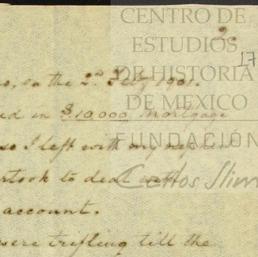 CENTRO DE
ESTUDIOS
DE HISTORIA
DE MEXICO
FUNDACIÓN
Carlos Slim
17
on the 2d July 1901.
in $10,000 mortgage
so I left with my
took to deal with
account.
were trifling till the